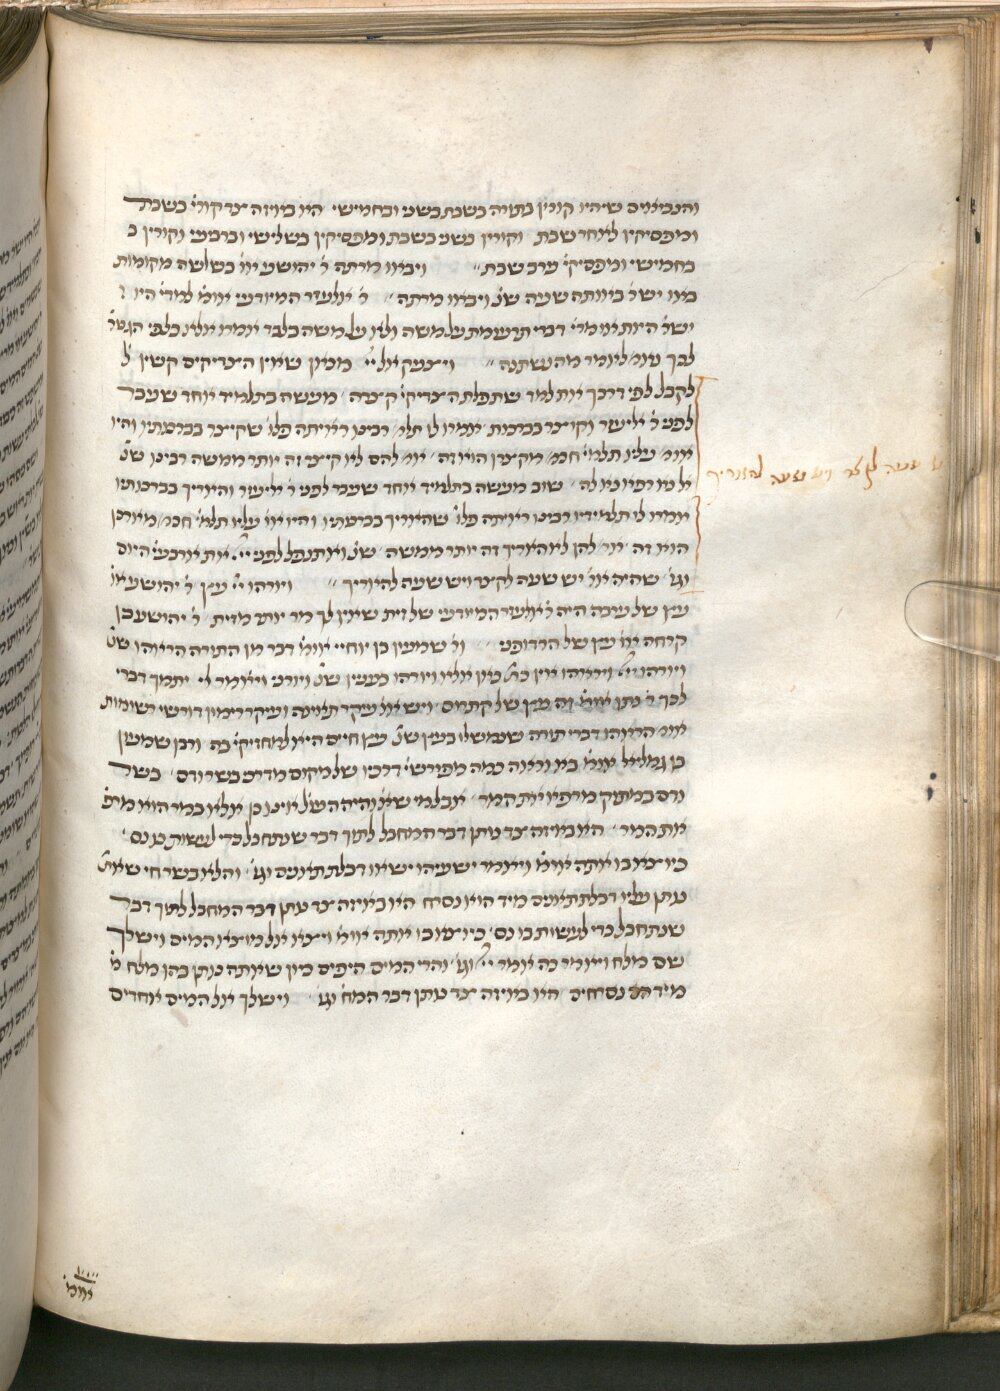 והנביאים שיהיו קורין בתורה בשבת בשני ובחמישי הא כאיזה צד קורי בשבת
ומפסיקין לאחר שבת וקורין בשני בשבת ומפסיקין בשלישי וברביעי וקורין ב
בחמישי ומפסיקי ערב שבת ויבאו מרתה ר יהושע אוֹ בשלשה מקומות
באו ישר באותה שעה שנ ויבאו מרתה ר אלעזר המודעי אומ למדי היו
ישר היות אומרי דברי תרעומת על משה ולא על משה בלבד אמרו אלא כלפי הגבר
לכך נאמ לאמר מה נשתה ויצעק אל יי מכאן שאין הצדיקים קשין ל
לקבל לפי דרכך את למד שתפלת הצדיקי קצרה מעשה בתלמיד אחד שעבר
לפני ר אליעזר וקצר בברכות אמרו לו תלמ רבינו ראיתה פלו שקיצר בברכותיו והיו
אומ עליו תלמ חכמ מקצרן הוא זה אמ להם לא קיצר זה יותר ממשה רבינו שנ
אל נא רפא נא לה שוב מעשה בתלמיד אחד שעבר לפני ר אליעזר והאריך בברכותיו
אמרו לו תלמידיו רבינו ראיתה פלו שהאריך בברכותיו והיו אומ עליו תלמ חכמ מאורכן
הוא זה אמ להן לא האריך זה יותר ממשה שנ ואתנפל לפני יי את ארבעי היום
וגו שהיה אומ יש שעה לקצר ויש שעה להאריך ויורהו יי עץ ר יהושע אוֹ
עץ של ערבה היה ר אלעזר המודעי של זית שאין לך מר יותר מזית ר יהושע בן
קרחה אוֹ עץ של הרדופני ור שמעון בן יוחי אומ דבר מן התורה הראהו שנ
ויורהו יי ויראהו אין כת כאן אלא ויורהו כענין שנ ויורני ויאמר לי יתמך דברי
לבך ר נתן אומ זה עץ של קתרוס ויש אומ עיקר תאינה ועיקר רימון דורשי רשומות
אומ הראהו דברי תורה שנמשלו בעץ שנ עץ חיים היא למחזיקי בה ורבן שמעון
בן גמליאל אומ בא וראה כמה מפורשי דרכיו של מקום מדרכ בשר ודם בשר
ודם במתוק מרפא את המר אבל מי שאמ והיה העול אינו כן אלא במר הוא מרפ
את המר הא כאיזה צד נותן דבר המחבל לתוך דבר שנתחבל כדי לעשות בו נס
כיוצא בו אתה אומ ויאמר ישעיהו ישאו דבלת תאנים וגו והלא בשר חי שאת
נותן עליו דבלת תאנים מיד הוא נסרח הא כאיזה צד נותן דבר המחבל לתוך דבר
שנתחבל כדי לעשות בו נס כיוצא בו אתה אומ ויצא אל מוצא המים וישלך
שם מלח ויאמר כה אמר יי וגו והרי המים היפים כיון שאתה נותן בהן מלח מ
מיד הם נסרחים הא כאיזה צד נותן דבר המח וגו וישלך אל המים אחרים
יש שעה לקצר ויש שעה להאריך